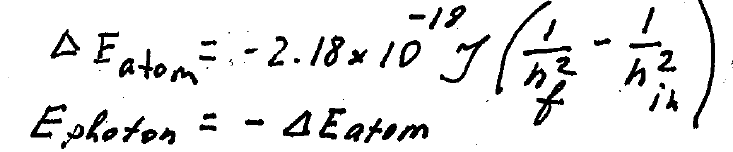 ΔE_atom = -2.18 x 10^-18 J (1/n_f^2 - 1/n_in^2)
E_photon = - ΔE_atom